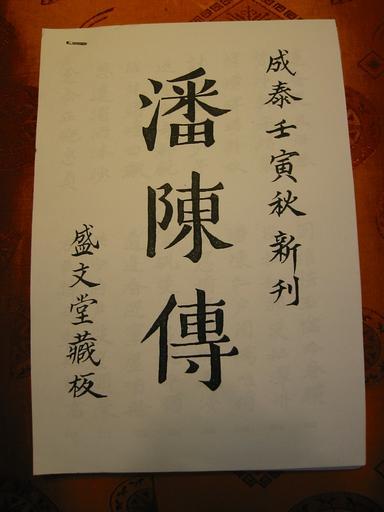 成泰壬寅秋新刋
潘陳傳
盛文堂藏板